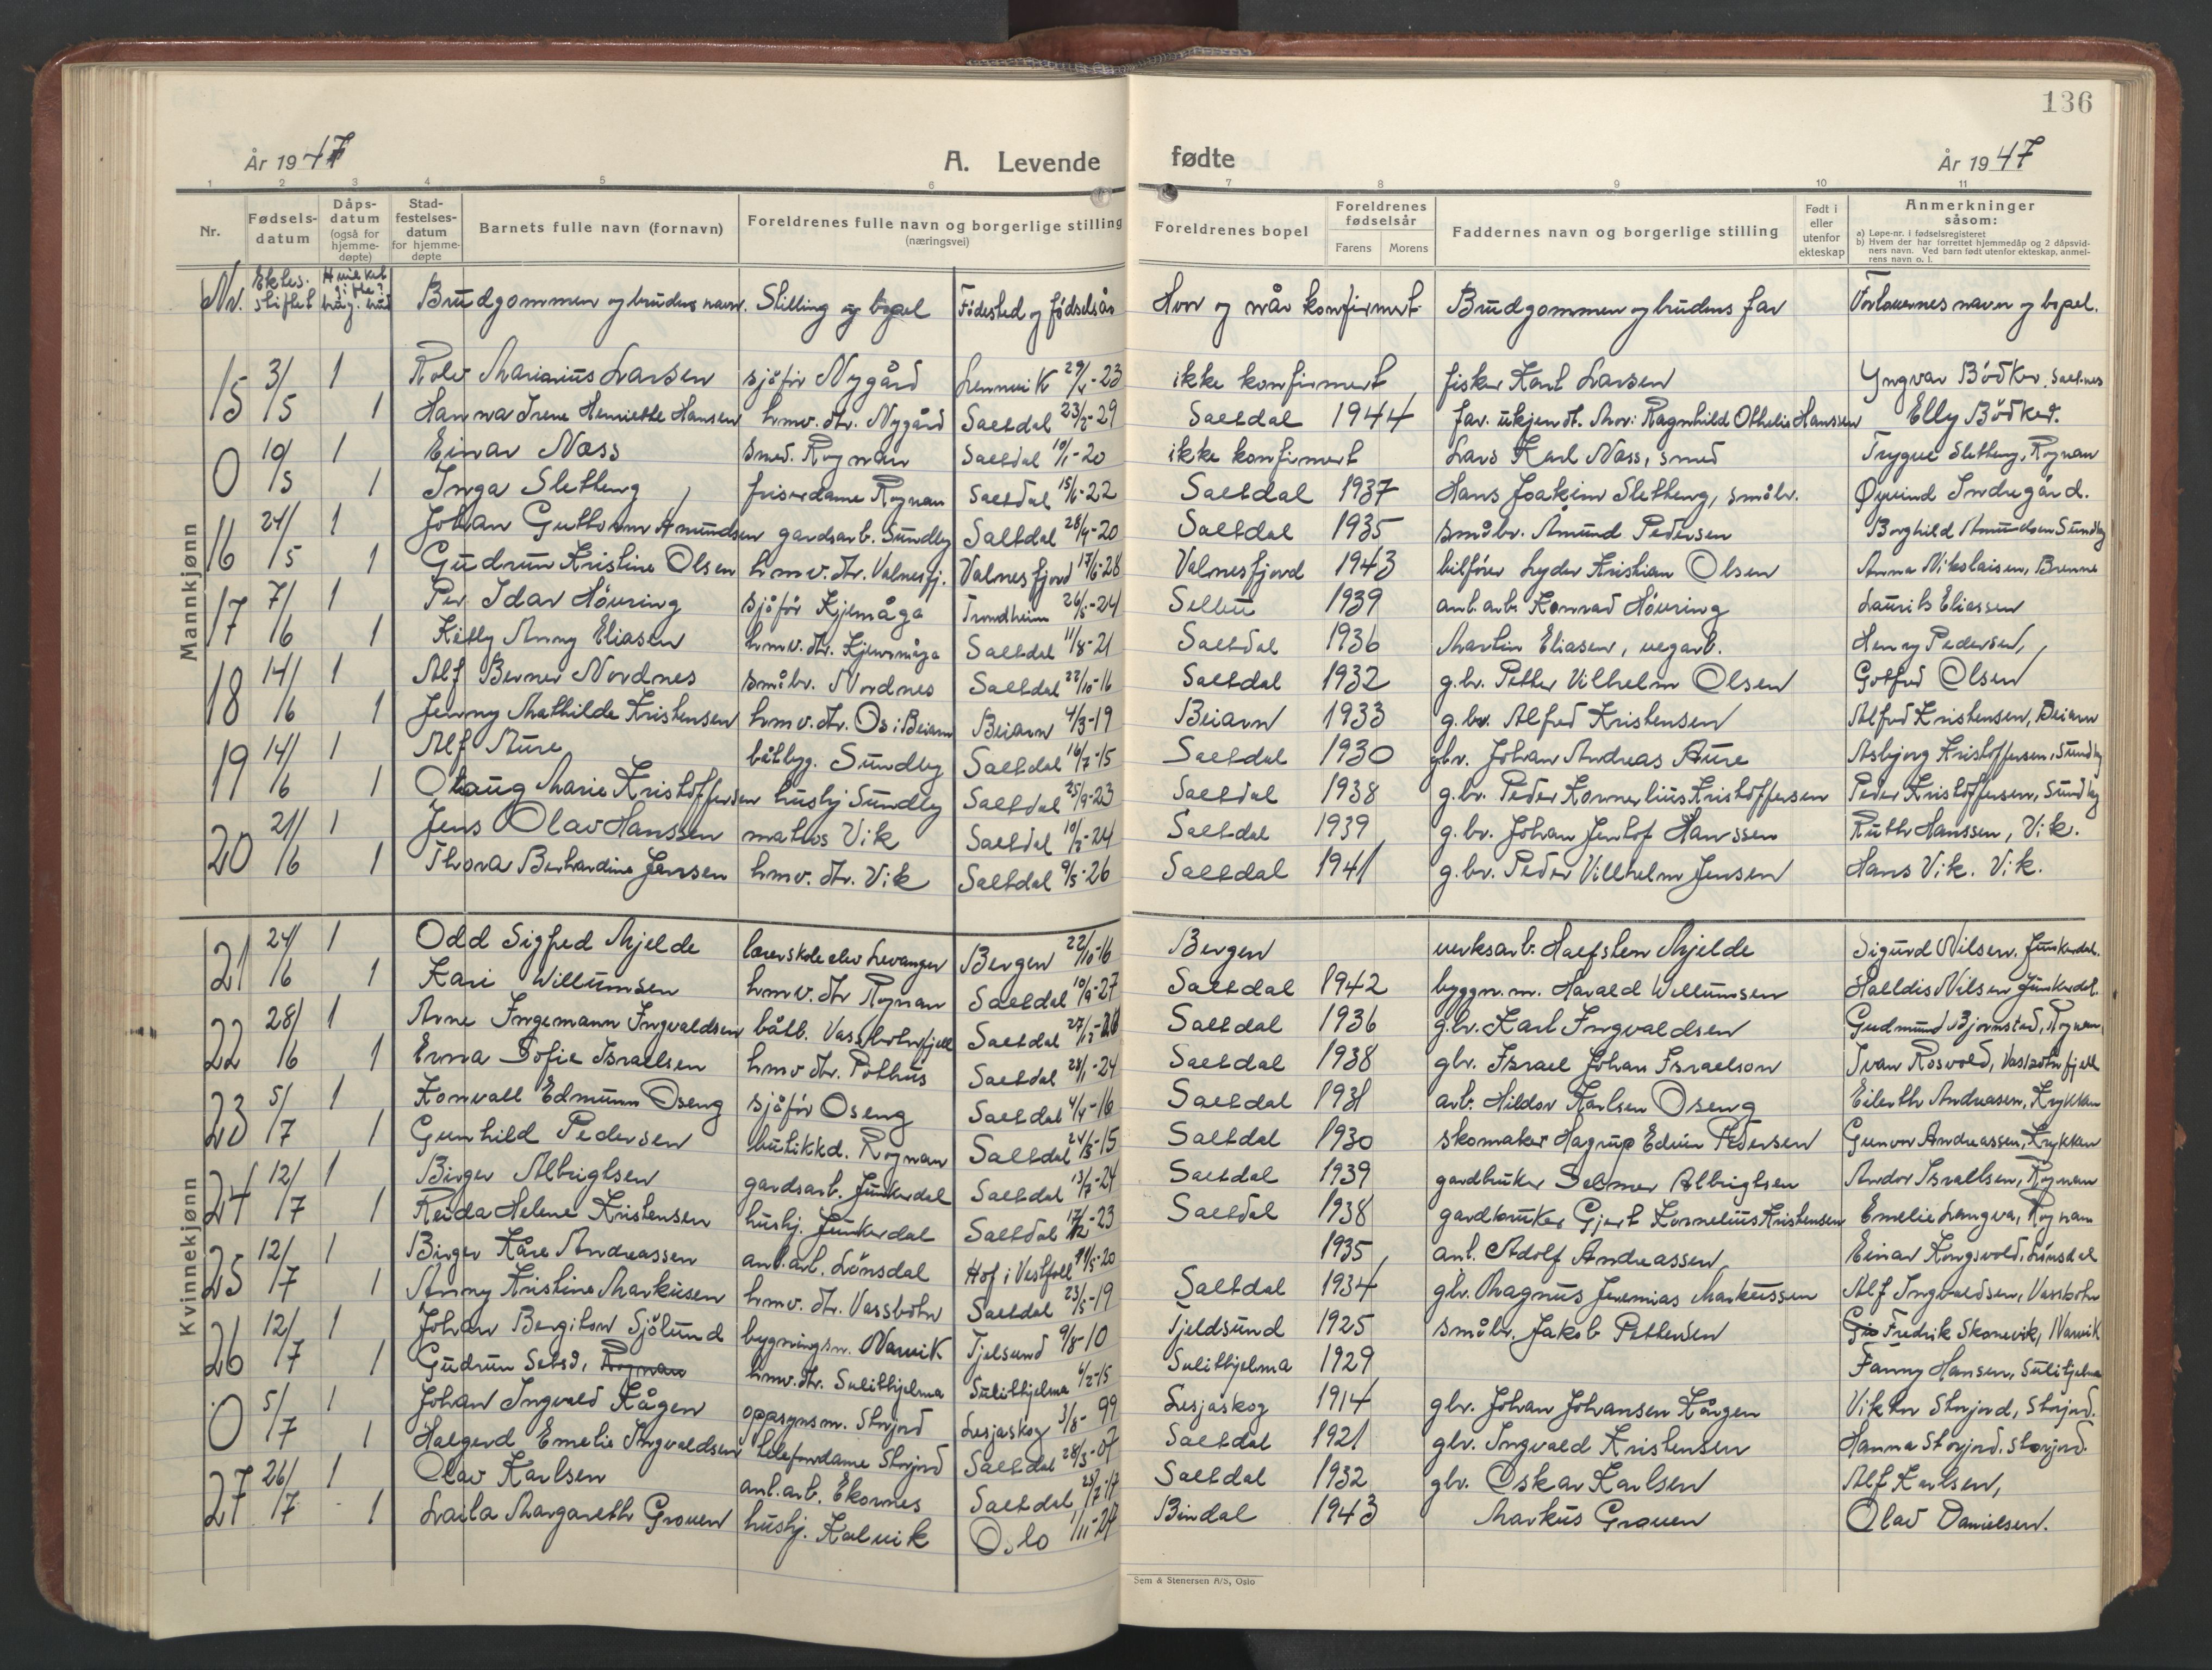 136
År 1947
A. Levende
fødte
År 1947
1 2 3 4 5 6 7 8 9 10 11
Nr. Fødsels-datum Dåps-datum (også for hjemme-døpte) Stad-festelses-datum for hjemme-døpte Barnets fulle navn (fornavn) Foreldrenes fulle navn og borgerlige stilling (næringsvei) Foreldrenes bopel Foreldrenes fødselsår Farens Morens Faddernes navn og borgerlige stilling Født i eller utenfor ekteskap Anmerkninger såsom:
a) Løpe-nr. i fødselsregisteret
b) Hvem der har forrettet hjemmedåp og 2 dåpsvid-
ners navn. Ved barn født utenfor ekteskap, anmel-
rens navn o. l.
Nr. Ektes. stiftet Brudgommen og brudens navn. Stilling og bopel Fødested og fødselsår Hvor og når konfirmert Brudgommen og brudens far Forlovernes navn og bopel.
Mannkjønn
15 3/5 1 Rolv Mariarius Larsen sjåfør Nygård Lennvik 29/4-23 ikke konfirmert fisker Karl Larsen Yngvar Bödker, Saltnes
1 Hanna Irene Henriette Hansen hmv. dtr. Nygård Saltdal 23/2-29 Saltdal 1944 far. ukjendt. Mor: Ragnhild Othelie Hanssen Elly Bödker.
0 10/5 1 Einar Næss smed. Rognan Saltdal 10/1-20 ikke konfirmert Lars Karl Næss, smed Trygve Sletteng, Rognan
1 Inga Sletteng friserdame Rognan Saltdal 15/6-22 Saltdal 1937 Hans Joakim Sletteng, småbr. Øyvind Indregård.
16 24/5 1 Johan Guttorm Amundsen gardsarb. Sundby Saltdal 28/4-20 Saltdal 1935 småbr. Åmund Pedersen Borghild Amundsen Sundby
1 Gudrun Kristine Olsen hmv. dtr. Valnesfj. Valnesfjord 17/6-28 Valnesfjord 1943 bilfører Lyder Kristian Olsen Anna Nikolaisen, Brenne
17 7/6 1 Per Idar Høvring sjåfør Kjemåga Trondheim 26/5-24 Selbu 1939 anl. arb. Konrad Høvring Laurits Eliassen
1 Kitty Anny Eliasen hmv. dtr. Kjemåga Saltdal 11/8-21 Saltdal 1936 Martin Eliasen, vegarb. Henry Pedersen,
18 14/6 1 Alf Berner Nordnes småbr. Nordnes Saltdal 22/10-16 Saltdal 1932 g.br. Petter Vilhelm Olsen Gotfred Olsen
1 Jenny Mathilde Kristensen hmv. dtr. Os i Beiarn Beiarn 4/3-19 Beiarn 1933 g. br. Alfred Kristensen Alfred Kristensen, Beiarn
19 14/6 1 Alf Aure båtbyg. Sundby Saltdal 16/7-15 Saltdal 1930 gbr. Johan Andreas Aure Asbjørg Kristoffersen, Sundby
1 Olaug Marie Kristoffersen hushj Sundby Saltdal 25/9-23 Saltdal 1938 g. br. Peder Kornerlius Kristoffersen Peder Kristoffersen, Sundby
20 21/6 1 Jens Olav Hanssen matros Vik Saltdal 10/3-24 Saltdal 1939 g. br. Johan Jentof Hanssen Ruth Hanssen, Vik.
1 Thora Berhardine Jensen hmv. dtr. Vik Saltdal 9/5-26 Saltdal 1941 g. br. Peder Villhelm Jensen Hans Vik. Vik.
Kvinnekjønn
21 24/6 1 Odd Sigfred Mjelde lærerskole elev Levanger Bergen 22/10-16 Bergen verksarb. Halfsten Mjelde Sigurd Nilsen, Junkerdal.
1 Kari Willumsen hmv. dtr Rognan Saltdal 10/9-27 Saltdal 1942 byggn. m. Harald Willumsen Halldis Nilsen Junkerdal.
22 28/6 1 Arne Ingemann Ingvaldsen båtb. Vassbotnfjell Saltdal Saltdal 1936 g.br. Karl Ingvaldsen Gudmund Bjørnstad, Rognan
1 Erna Sofie Israelsen hmv dtr. Pothus Saltdal 28/1-24 Saltdal 1938 gbr. Israel Johan Israelson Ivar Rosvold, Vassbotnfjell
23 5/7 1 Konrall Edmunn Oseng sjåfør Oseng Saltdal 4/4-16 Saltdal 1931 arb. Hildor Karlsen Oseng Eilerth Andreasen, Krykkan
1 Gunhild Pedersen butikkd. Rognan Saltdal 24/5-15 Saltdal 1930 skomaker Hagrup Edvin Pedersen Gunvor Andreassen, Krykkan
24 12/7 1 Birger Albrigtsen gardsarb. Junkerdal Saltdal 13/7-24 Saltdal 1939 gardbruker Selmer Albrigtsen Andor Israelsen, Rognan
1 Reida Helene Kristensen hushj. Junkerdal Saltdal 17/12-23 Saltdal 1938 gardbruker Gjert Kornelius Kristensen Emelie Lengva, Rognan
25 12/7 1 Birger Kåre Andreassen anl. arb. Lönsdal Hof i Vestfoll 11/5-20 1935 anl. Adolf Andreassen Einar Kongsvold, Lönsdal
1 Anny Kristine Markusen hmv. dtr. Vassbotn Saltdal 23/5-19 Saltdal 1934 gbr. Magnus Jeremias Markussen Alf Ingvaldsen, Vassbotn
26 12/7 1 Johan Bergiton Sjölund bygningsn. Narvik Tjelsund 9/8-10 Tjeldsund 1925 småbr. Jakob Pettersen Fredrik Skonevik, Narvik
1 Gudrun Selsd, Rognan hmv. dtr. Sulithjelma Sulithjelma 6/2-15 Sulithjelma 1929 Fanny Hansen, Sulitjelma
0 5/7 1 Johan Ingvald Kågen oppsynsm. Storjord Lesjaskog 3/8-99 Lesjaskog 1914 gbr. Johan Johansen Kången Viktor Storjord, Storjord.
1 Halgerd Emelie Ingvaldsen telefondame Storjord Saltdal 28/3-07 Saltdal 1921 gbr. Ingvald Kristensen Hanna Storjord. Storjord.
27 26/7 1 Olav Karlsen anl. arb. Ekornes Saltdal 25/7-17 Saltdal 1932 gbr. Oskar Karlsen Alf Karlsen,
1 Laila Margareth Groven hushj. Kalvik Oslo 1/11-27 Bindal 1943 Markus Groven Olav Danielsen.
Sem & Stenersen A/S, Oslo